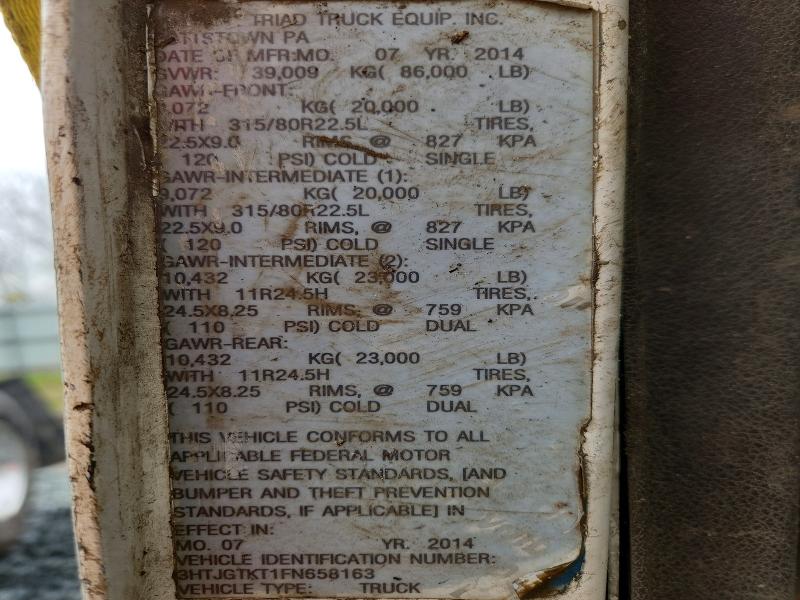 TRIAD TRUCK EQUIP. INC.
TTSTOWN PA
DATE OF MFR:MO. 07 YR. 2014
GVWR: 39,009 KG( 86,000 LB)
GAWR-FRONT:
,072 KG( 20,000 LB)
WITH 315/80R22.5L TIRES,
22.5X9.0 RIMS, @ 827 KPA
120 PSI) COLD SINGLE
GAWR-INTERMEDIATE (1):
9,072 KG( 20,000 LB)
WITH 315/80R22.5L TIRES,
22.5X9.0 RIMS, @ 827 KPA
( 120 PSI) COLD SINGLE
GAWR-INTERMEDIATE (2):
10,432 KG( 23,000 LB)
WITH 11R24.5H TIRES,
24.5X8.25 RIMS, @ 759 KPA
( 110 PSI) COLD DUAL
GAWR-REAR:
10,432 KG( 23,000 LB)
WITH 11R24.5H TIRES,
24.5X8.25 RIMS, @ 759 KPA
( 110 PSI) COLD DUAL
THIS VEHICLE CONFORMS TO ALL
APPLICABLE FEDERAL MOTOR
VEHICLE SAFETY STANDARDS, [AND
BUMPER AND THEFT PREVENTION
STANDARDS, IF APPLICABLE] IN
EFFECT IN:
MO. 07 YR. 2014
VEHICLE IDENTIFICATION NUMBER:
3HTJGTKT1FN658163
VEHICLE TYPE: TRUCK